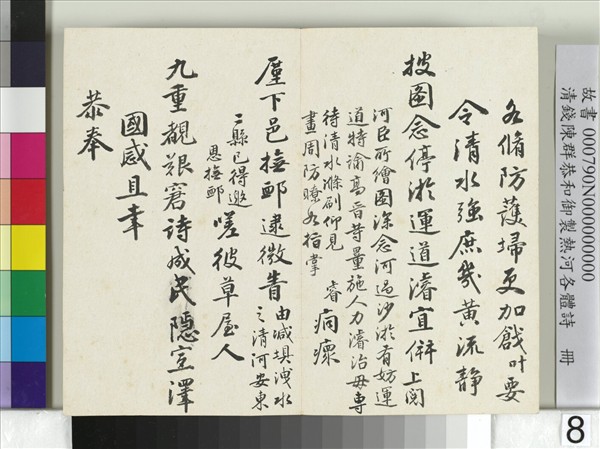 各脩防護埽更加戧叶要
令清水強庶幾黃流靜
披圖念停淤運道濬宜併上閱
河臣所繪圖深念河過沙淤有妨運
道特諭高晉等量施人力濬治毋專
待清水滌刷仰見
睿
畫周防瞭如指掌
痌瘝
廑下邑撫卹逮微眚由減垻洩水
之清河安東
二縣已得邀
恩撫卹
嗟彼草屋人
九重覩艱窘詩成民隱宣澤
國感且幸
恭奉
故書 000790N000000000
清錢陳群恭和御製熱河各體詩 冊
8